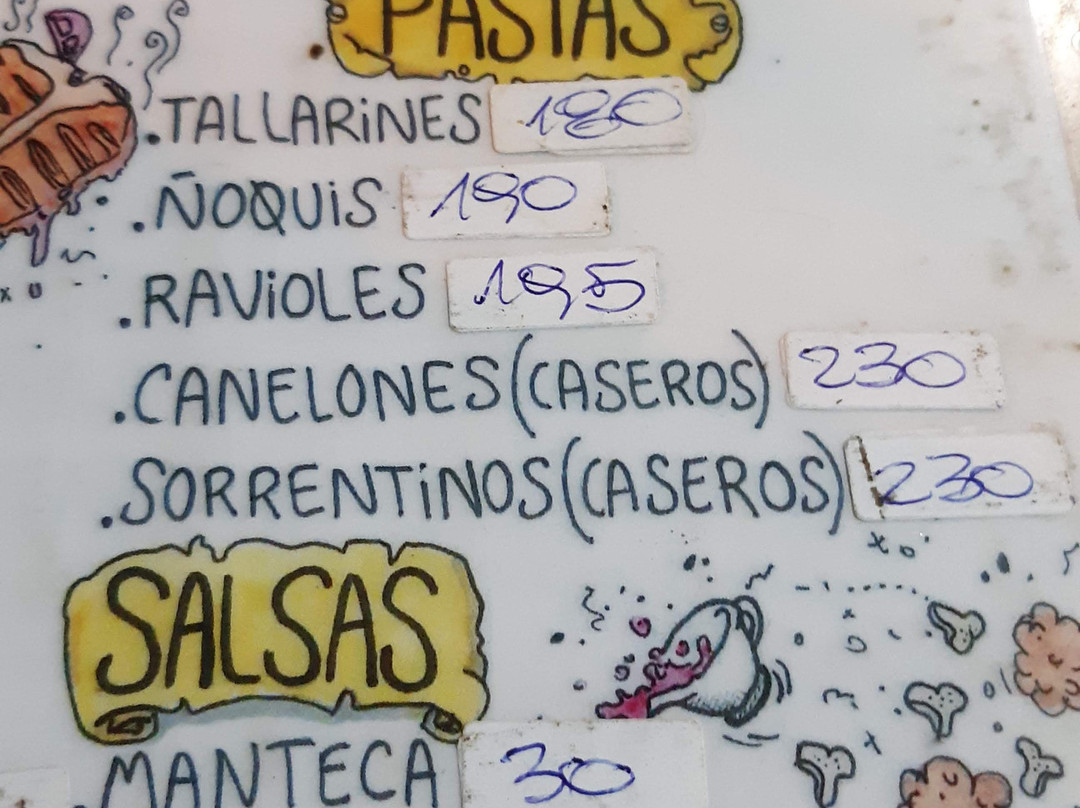 PASTAS
.TALLARiNES 180
.ÑOQUiS 190
.RAViOLES 195
.CANELONES (CASEROS) 230
.SORRENTiNOS (CASEROS) 230
SALSAS
.MANTECA 30